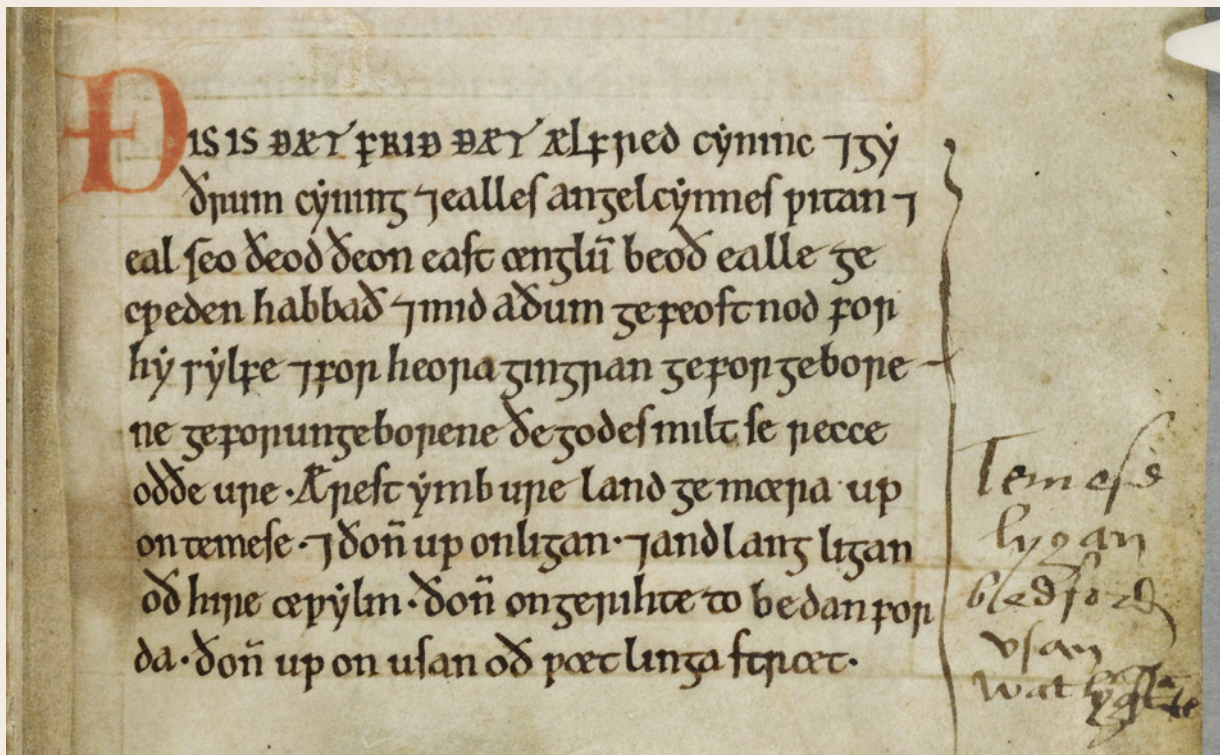 ÐIS IS ÐÆT FRIÐ ÐÆT ÆLFRED cẏninc ⁊ gẏ
ðrum cẏning ⁊ ealles angelcẏnnes ƿitan ⁊
eal seo ðeod ðe on east ænglū beoð ealle ge
cƿeden habbað ⁊ mid aðum gefeostnod for
hẏ sẏlfe ⁊ for heora gingran ge for gebore
ne ge for ungeborene ðe godes miltse recce
oððe ure · Ærest ẏmb ure land gemæra up
on temese · ⁊ ðoñ up on ligan · ⁊ andlang ligan
oð hire æƿẏlm · ðoñ on gerihte to bedanfor
da · ðoñ up on usan oð ƿætlinga stræt ·
Temese
lygan
bedford
vsan